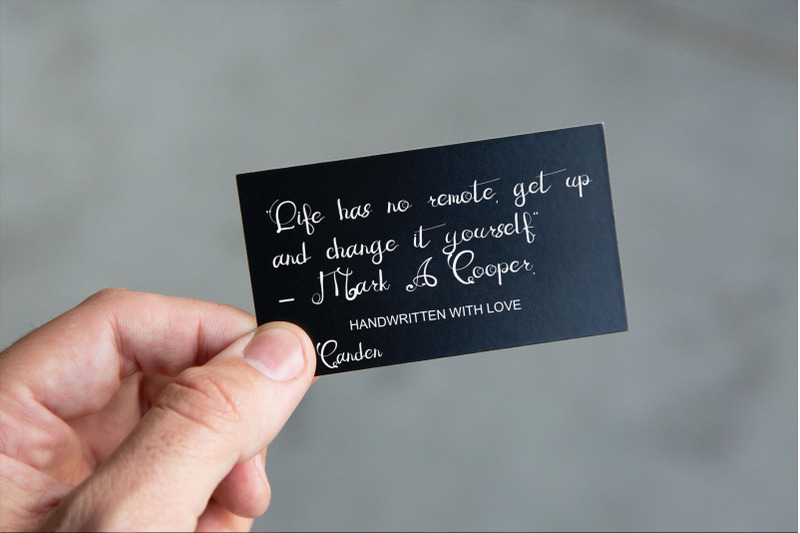 "Life has no remote, get up
and change it yourself"
– Mark A Cooper.
HANDWRITTEN WITH LOVE
Canden